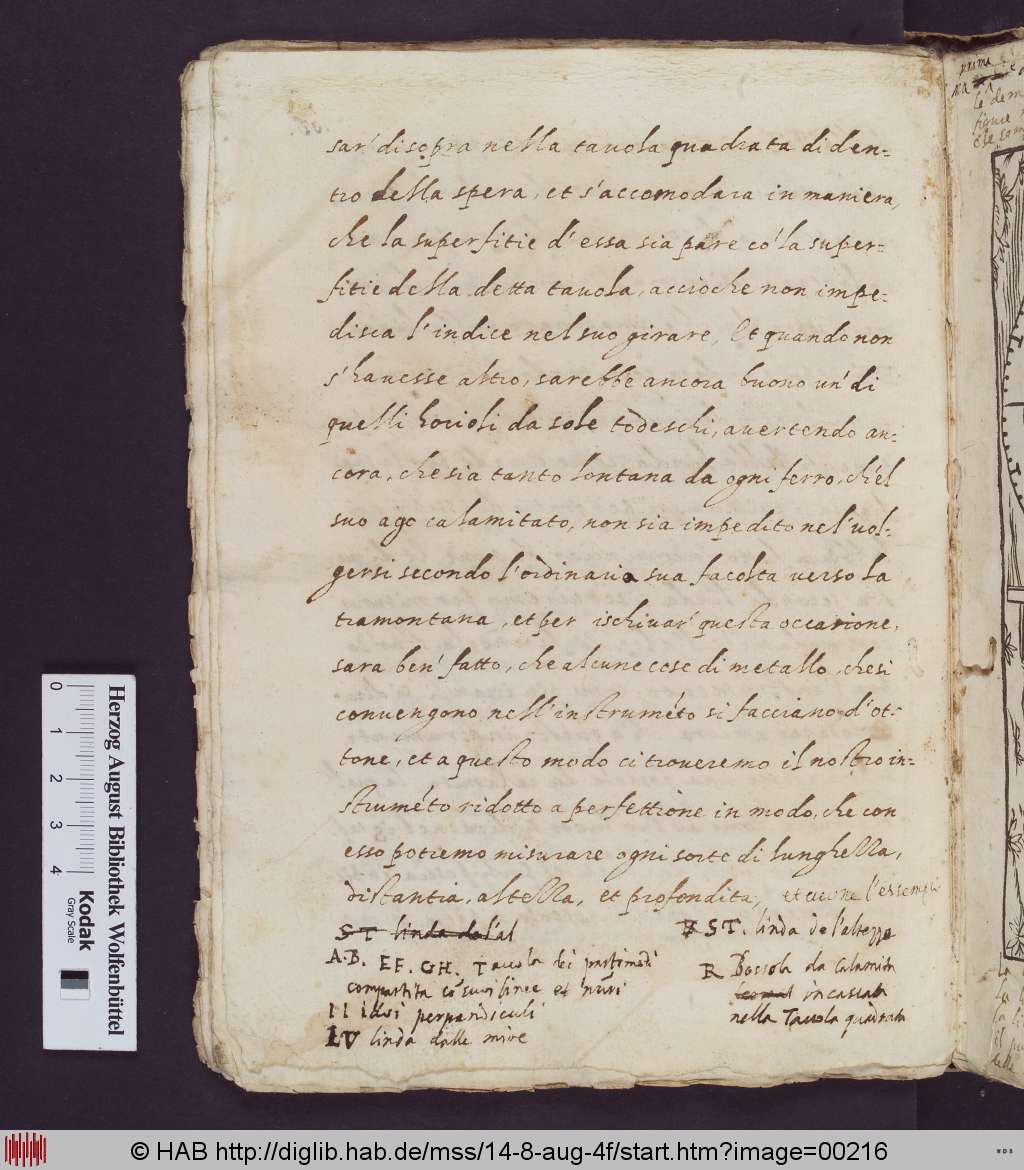 sar' disopra nella tauola quadrata di den-
tro della spera, et s'accomodara in maniera,
che la superfitie d'essa sia pare có la super-
fitie della detta tauola, accioche non impe-
disca l'indice nel suo girare, Et quando non
s'hauesse altro, sarebbe ancora buono un' di
quelli horioli da sole todeschi, auertendo an-
cora, che sia tanto lontana da ogni ferro, ch'el
suo ago calamitato, non sia impedito nel uol-
gersi secondo l'ordinaria sua facolta uerso la
tramontana, et per ischiuar' questa occasione,
sara ben' fatto, che alcune cose di metallo, che si
conuengono nell'instruméto si facciano d'ot-
tone, et a questo modo ci troueremo il nostro in-
struméto ridotto a perfettione in modo, che con
esso potremo misurare ogni sorte di lunghezza,
distantia, altezza, et profondita, et l'essempi
ST linda de l'al
ST. linda de l'altezze
A.B. EE. GH. Tauola dei partimeti
compartita có suoi linee et nuri
II perpendiculi
LV linda dalle mire
R Bossola da Calamita
incassata
nella Tauola quadrata
prima
Herzog August Bibliothek Wolfenbüttel
Kodak
Gray Scale
0 1 2 3 4
© HAB http://diglib.hab.de/mss/14-8-aug-4f/start.htm?image=00216